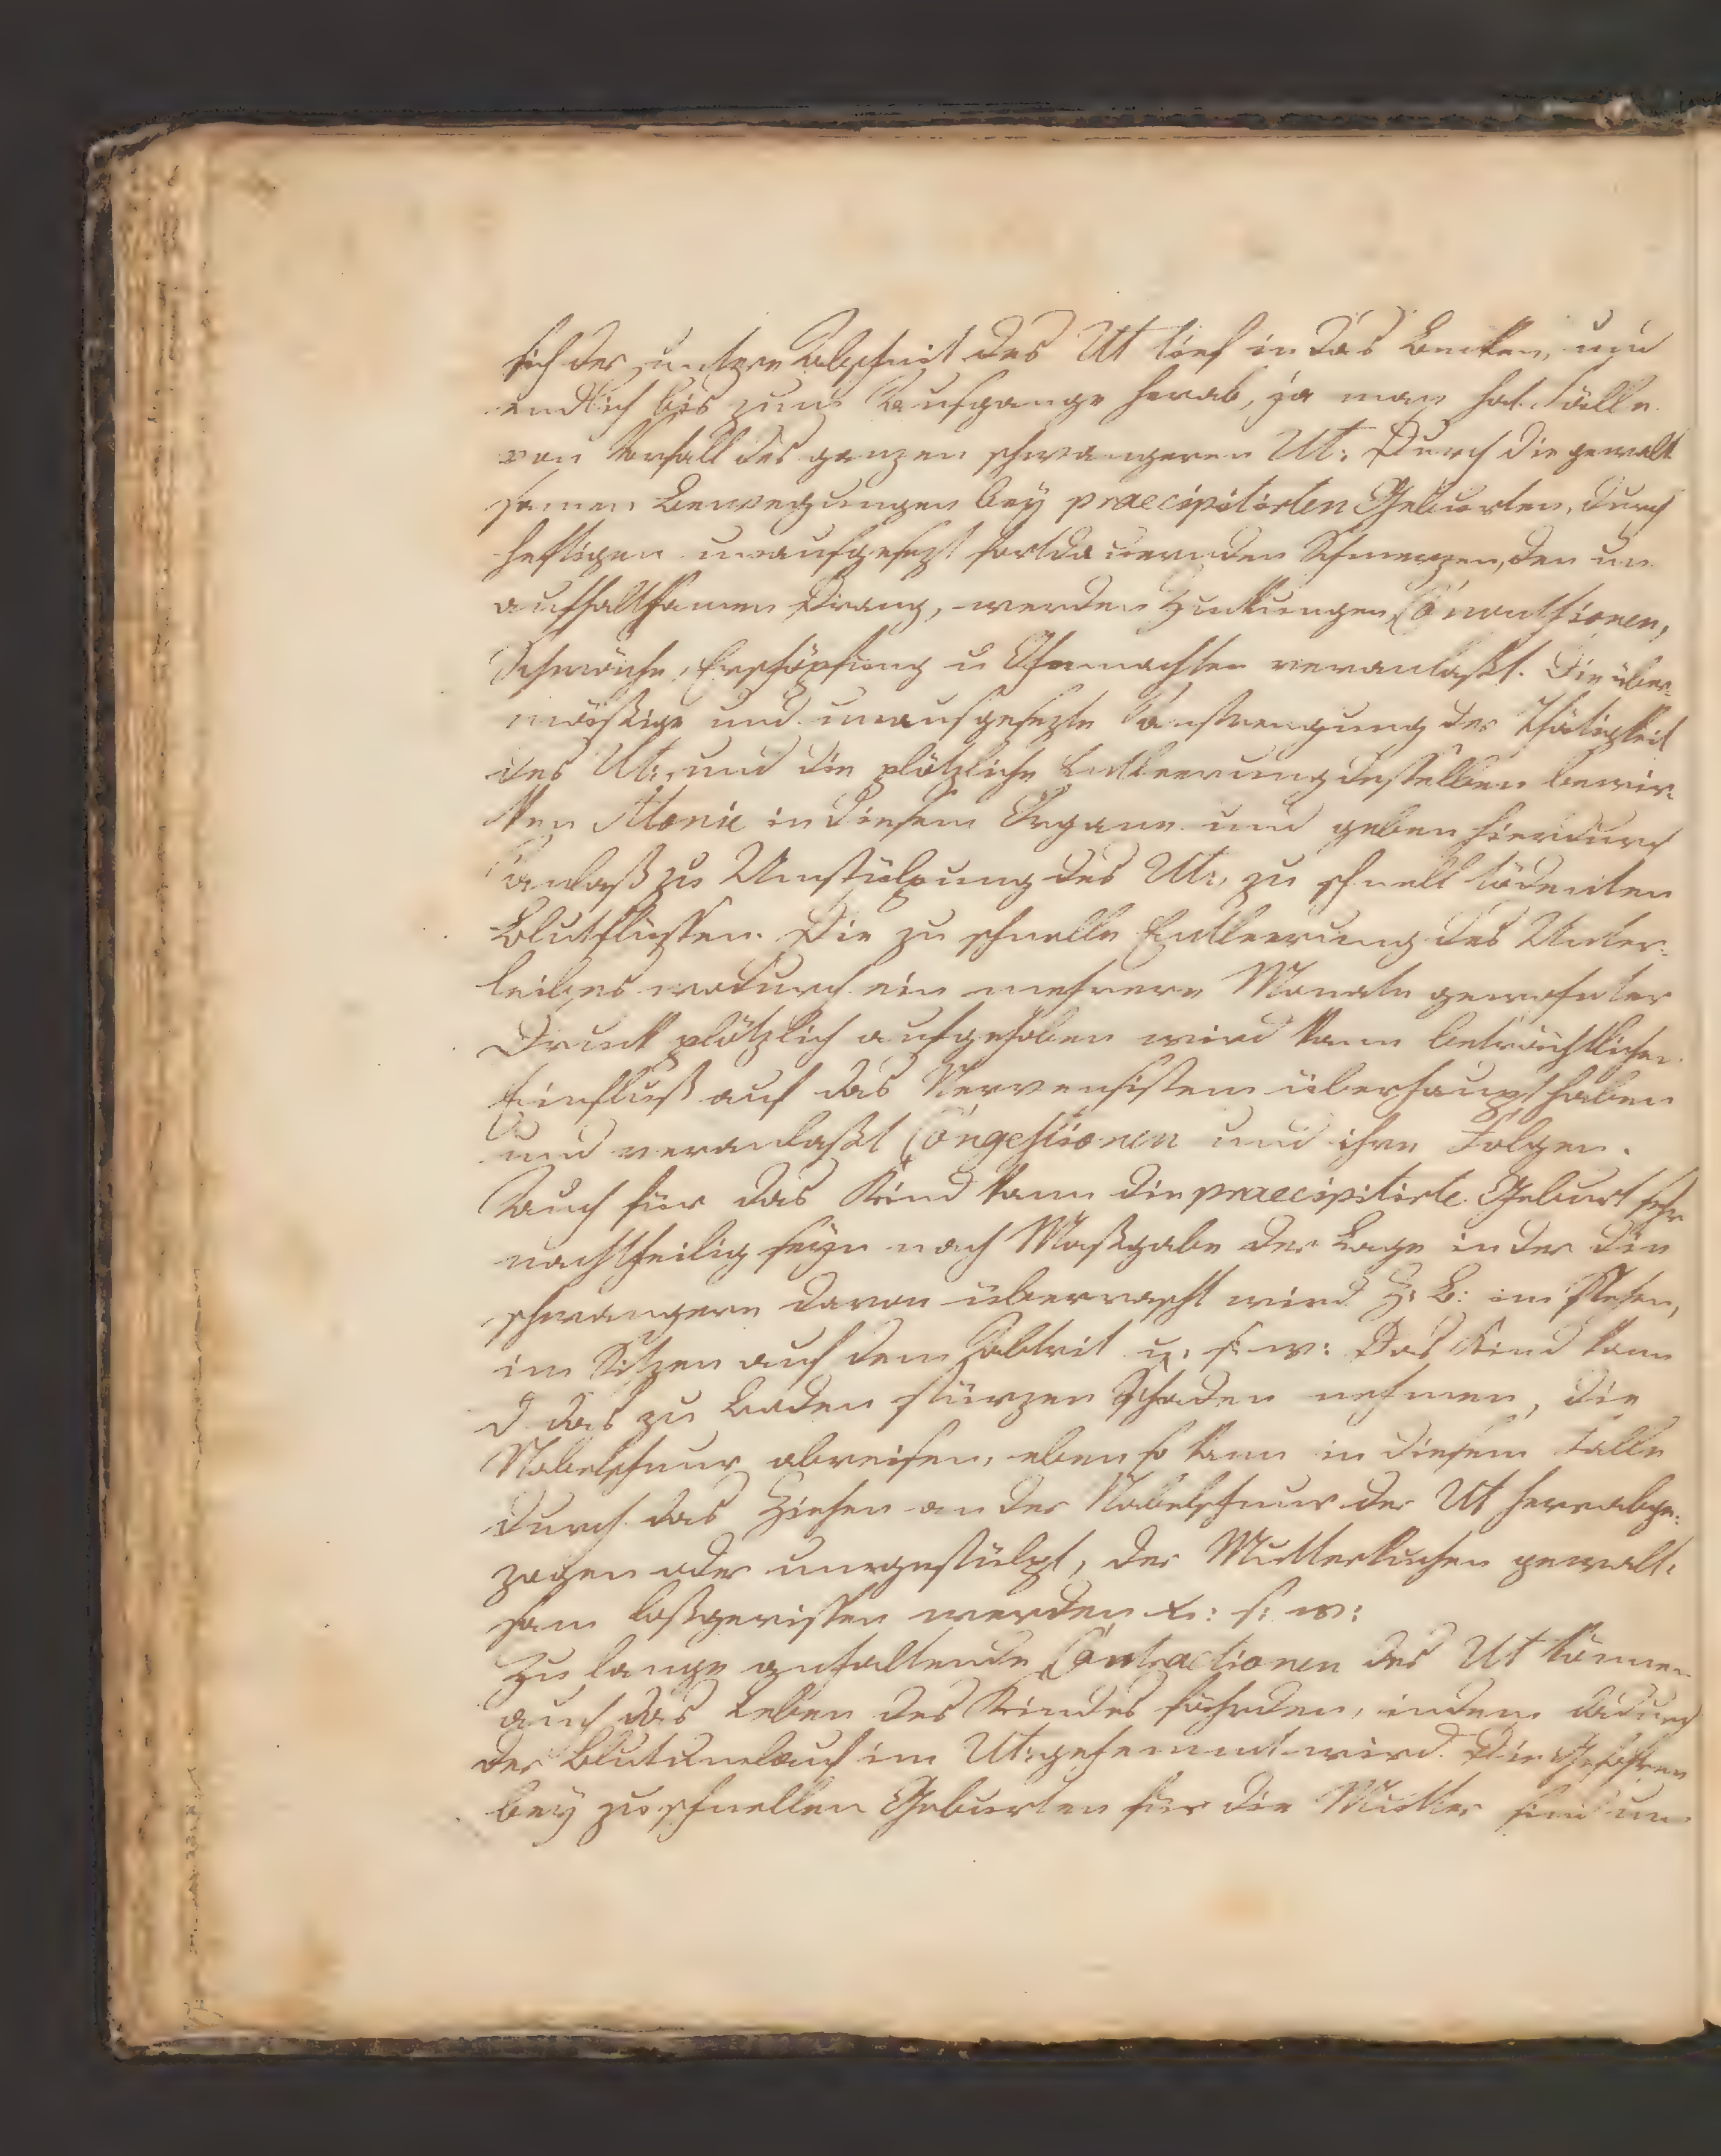 sich der untere Abschnit des Ut tief in das Becken, und
endlich bis zum Ausgange herab, ja man hat Fälle
von Vorfall des ganzen schwangeren Ut: Durch die gewalt
samen Bewegungen bey praecipitirten Geburten, durch
heftigen unausgesezt fortdauernden Schmerzen, den un
aufhaltsamen Drang, werden Zuckungen, Convulsionen,
Schwäche, Erschöpfung u Ohnmachten veranlaßt. Die über=
mäßige und unausgesezte Anstrengung der Thätigkeit
des Ut:, und die plötzliche Entleerung desselben bewir=
ken Atonie in diesem Organe und geben hierdurch
Anlaß zu Umstülpung des Ut:, zu schnell tödenten
Blutflüssen. Die zu schnelle Entleerung des Unter=
leibes wodurch ein mehrere Monate gewohnter
Druck plötzlich aufgehoben wird kann beträchtlichen
Einfluß auf das Nervensistem überhaupt haben
und veranlaßt Congestionen und ihre Folgen.
Auch für das Kind kann die praecipitirte Geburt sehr
nachtheilig seyn nach Maßgabe der Lage in der die
schwangere davon überrascht wird z: B: im Stehen,
im Sitzen auf dem Abtrit u: s: w: Das Kind kann
d das zu Boden stürzen Schaden nehmen, die
Nabelschnur abreisen, eben so kann in diesem Falle
durch das Ziehen an der Nabelschnur der Ut herrabge=
zogen oder umgestülpt, der Mutterkuchen gewalt=
sam losgerissen werden u: s: w:
Zu lange anhaltende Contractionen des Ut können
auch das Leben des Kindes fährden, indem dadurch
der Blutumlauf im Ut: gehemmt wird. Die Gefahren
bey zu schnellen Geburten für die Mutter sind um